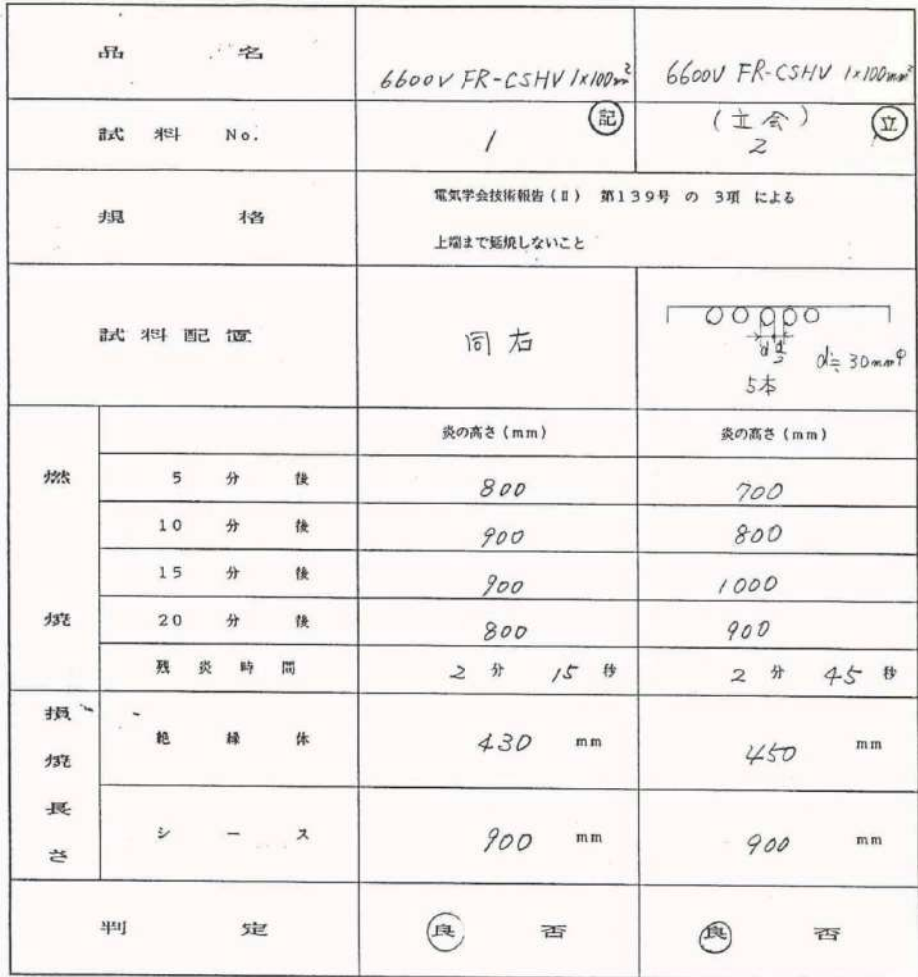 品 名 6600V FR-CSHV 1×100mm² 6600V FR-CSHV 1×100mm²
試料 No. 1 記 (立会) 2 立
規 格 電気学会技術報告(Ⅱ) 第139号 の 3項 による
上端まで延焼しないこと
試料配置 同右 d d/2 d≒30mmφ
5本
炎の高さ(mm) 炎の高さ(mm)
燃焼 5 分 後 800 700
10 分 後 900 800
15 分 後 900 1000
20 分 後 800 900
残 炎 時 間 2 分 15 秒 2 分 45 秒
損焼長さ 絶 縁 体 430 mm 450 mm
シ ー ス 900 mm 900 mm
判 定 良 否 良 否